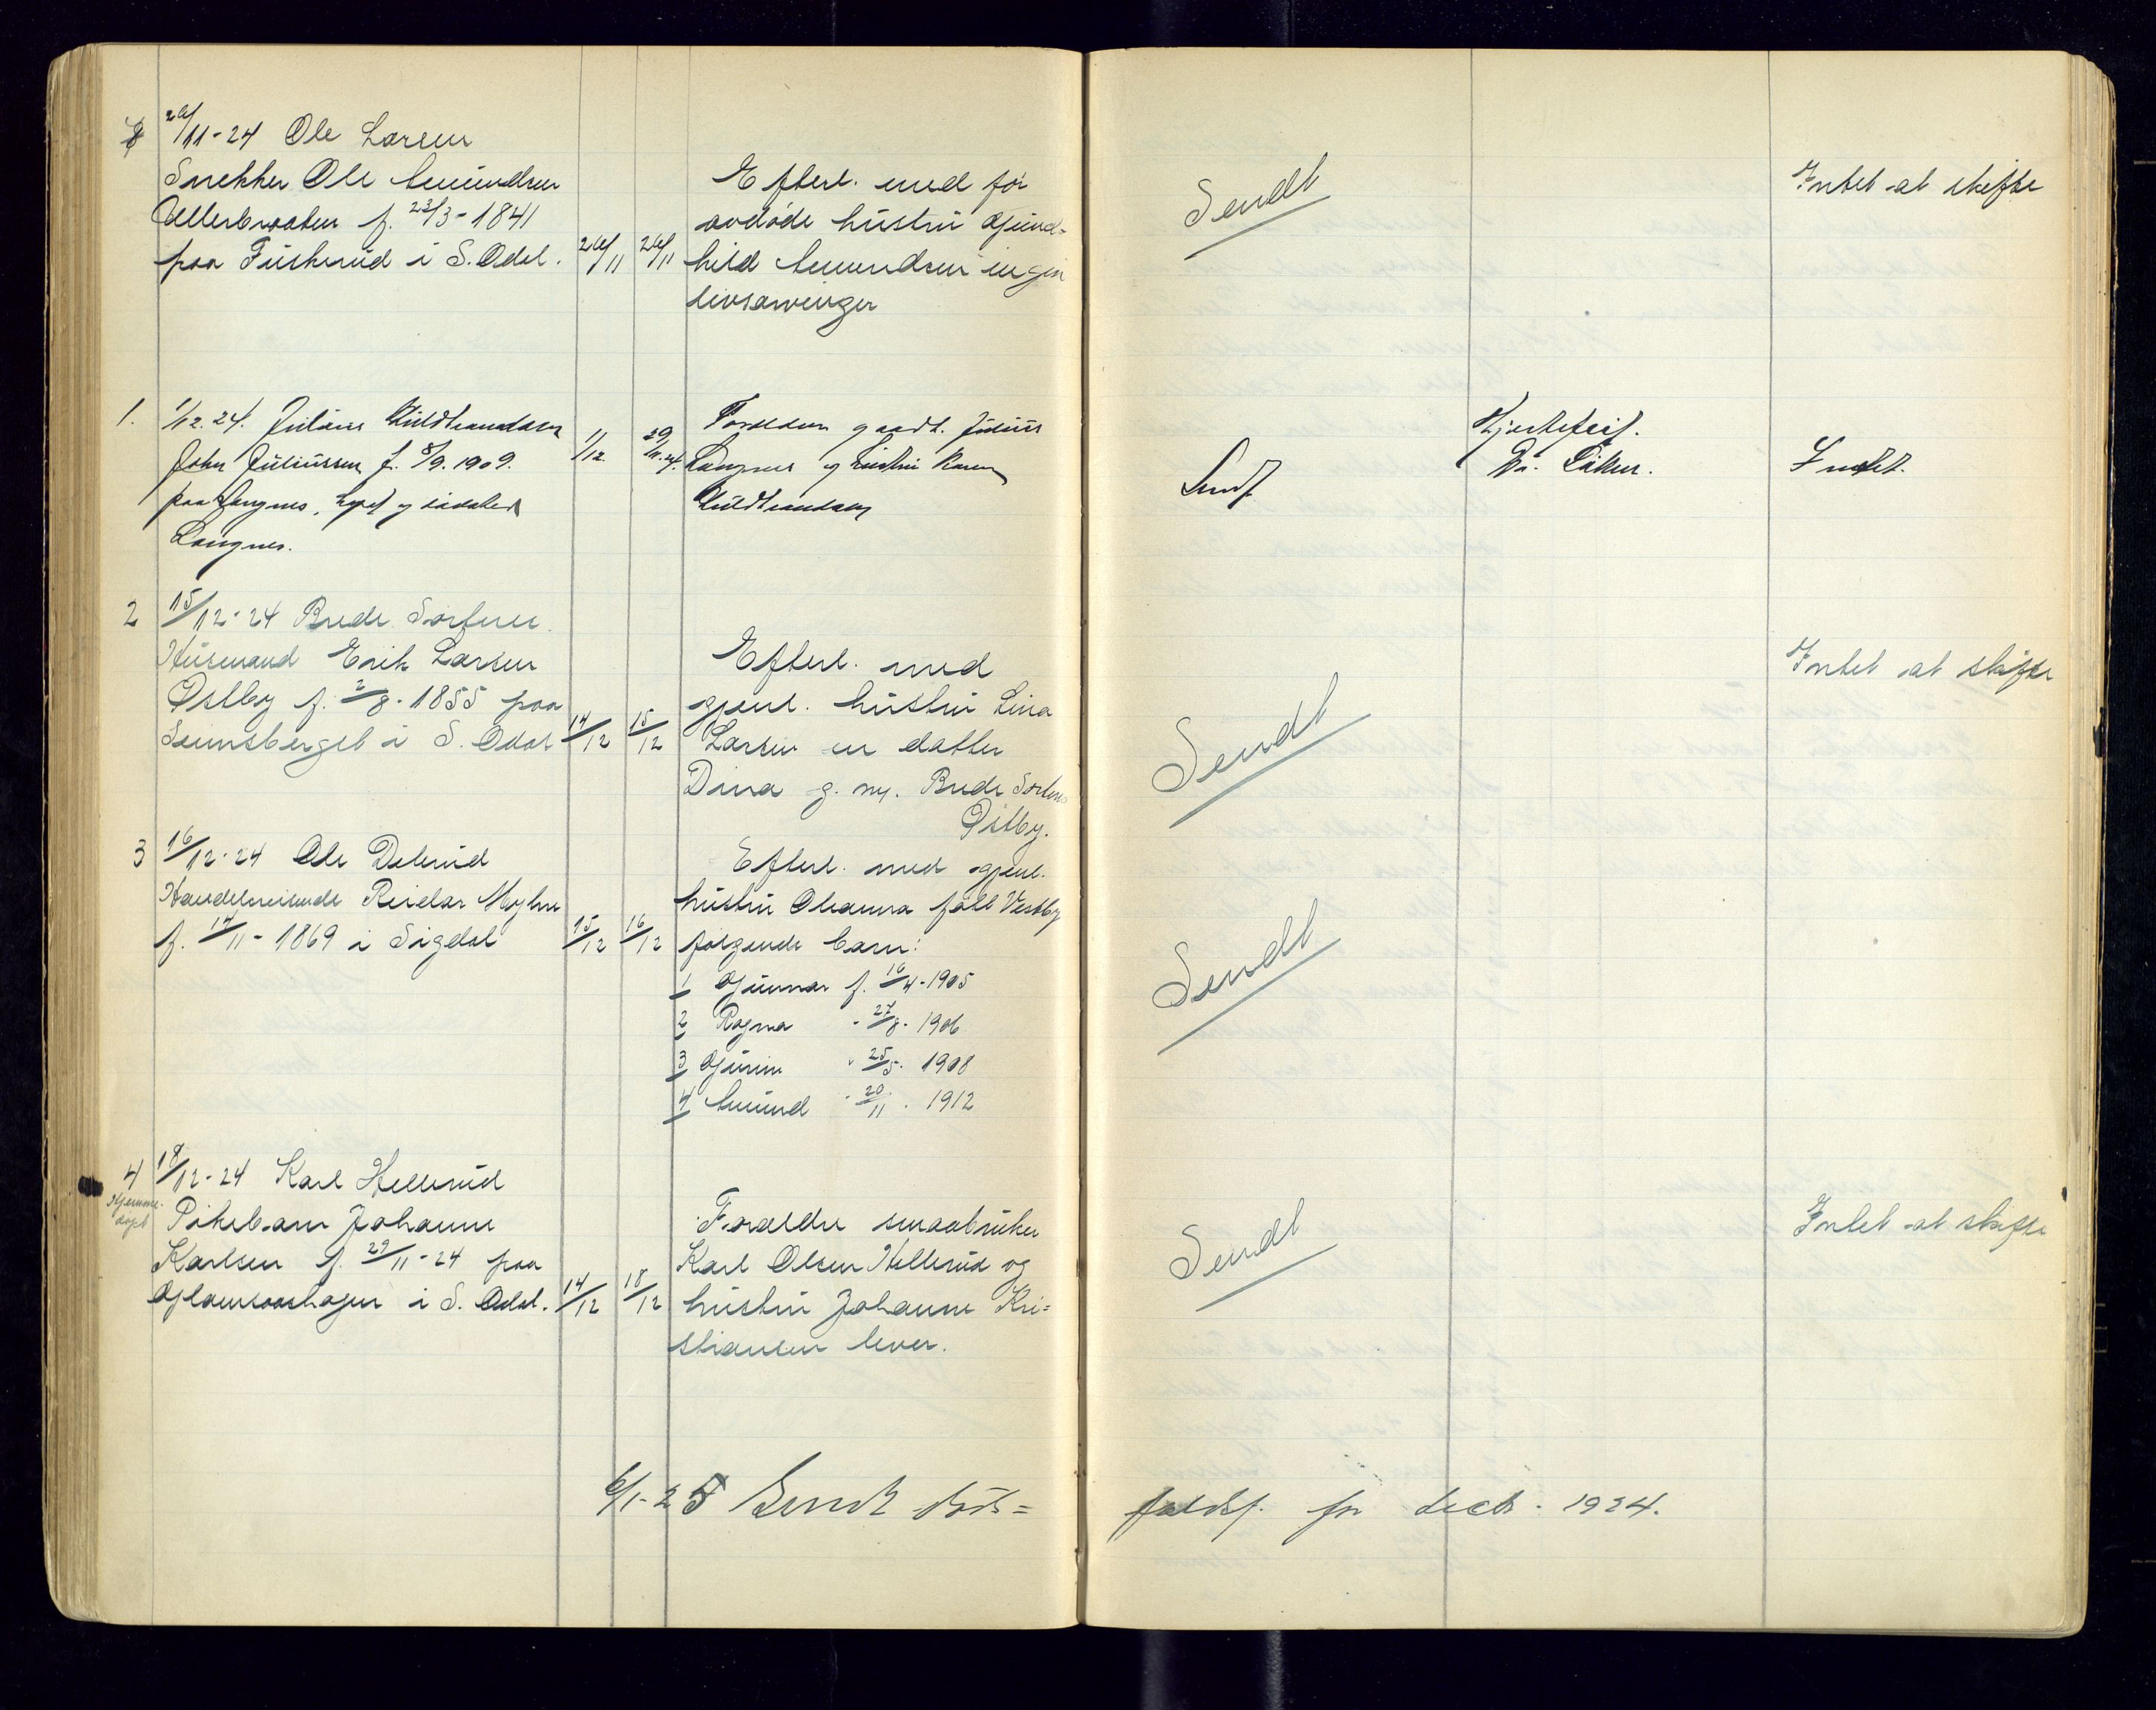 8 26/11-24 Ole Larsen
Snekker Ole Amundsen
Ullerbraaten f. 23/3-1841
paa Fuskerud i S. Odal. 26/11 26/11
Efterl. med før
avdøde hustru Gund=
hild Amundsen ingen
livsarvinger
Sendt
Intet at skifte
1. 1/12.24. Julius Guldbrandsen
John Juliussen f. 8/9.1909.
paa Langnes, og
Langnes.
1/12. 29/11.24.
Forældre gaardb. Julius
Langnes og hustru Karen
Guldbrandsen
Sendt
Hjertefeil.
Dr.
Intet.
2 15/12-24 Brede Sortnes.
Husmand Erik Larsen
Østby f. 2/8-1855 paa
i S. Odal 14/12 15/12
Efterl. med
gjenl. hustru Lina
Larsen en datter
Dina g. m. Brede Sortnes
Østby.
Sendt
Intet at skifte
3 16/12-24 Ole Dalerud
Handelsreisende Reidar Myhre
f. 14/11-1869 i Sigdal 15/12 16/12
Efterl. med gjenl.
hustru Oleanna født Vestby
følgende barn:
1 Gunnar f. 16/4-1905
2 Ragna - 27/8-1906
3 Guren - 25/5-1908
4 Amund - 20/11-1912
Sendt
4 18/12-24 Karl Hellerud
Hjemme-
døpt
Pikebarn Johanne
Karlsen f. 29/11-24 paa
i S. Odal. 14/12 18/12
Forældre smaabruker
Karl Olsen Hellerud og
hustru Johanne Kri=
stiansen lever.
Sendt
Intet at skifte
6/1-25 Sendt døds=
faldsf. for decb. 1924.